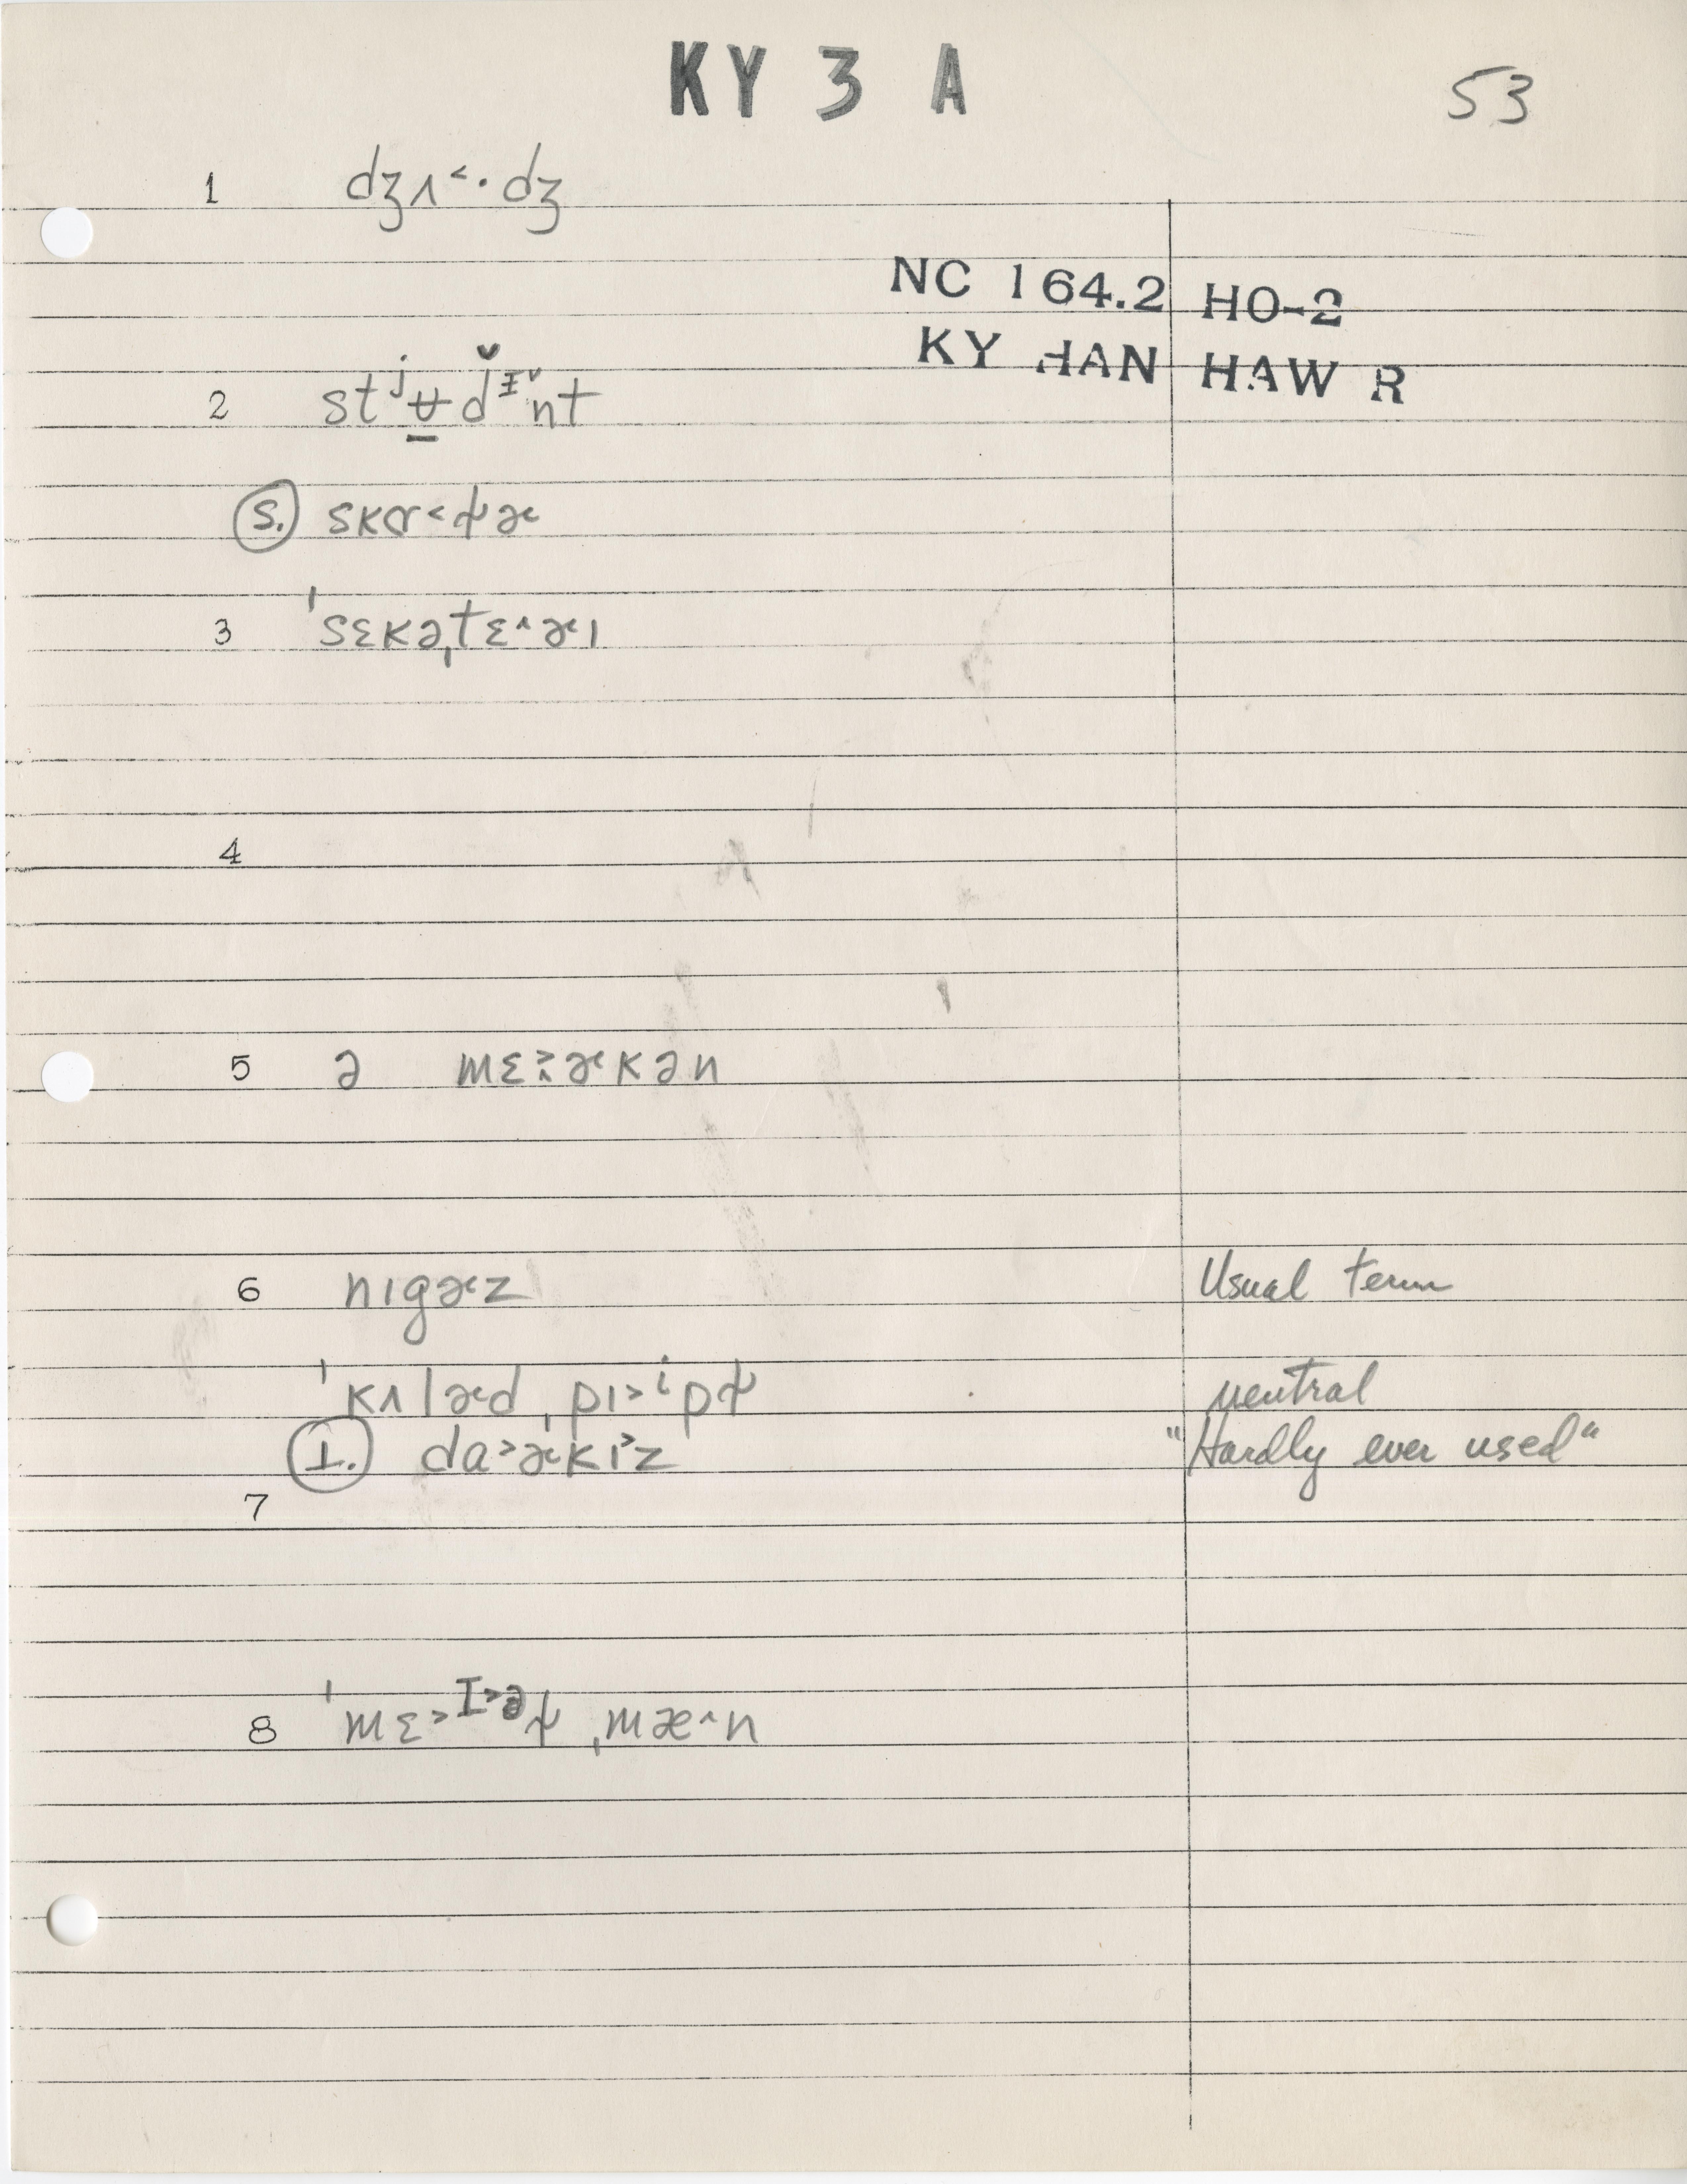 KY 3 A
53
1 dʒʌ˂·dʒ
NC 164.2 HO-2
KY HAN HAW R
2 stʲʉ̠dᶧ˅nt
S. skɤ˂ɫɚ
3 ˈsɛkəˌtɛ^ɚɪ
4
5 ə mɛ˃ɚkən
6 nɪgɚz Usual term
ˈkʌlɚd ˌpɪ˃ⁱpɫ neutral
I. dɑ˃ɚkɪ˃z "Hardly ever used"
7
8 ˈmɛ˃ᴵ˃ᵊɫ ˌmæ^n